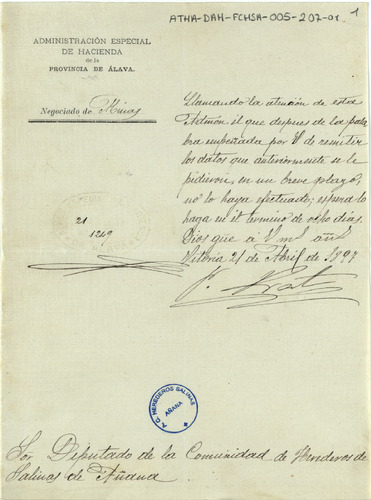 ATHA-DAH-FCHSA-005-207-01
1
ADMINISTRACIÓN ESPECIAL
DE HACIENDA
de la
PROVINCIA DE ÁLAVA.
Negociado de Minas
21
1249
Llamando la atención de esta
Admón el que despues de la pala
bra empeñada por V. de remitir
los datos que anteriormente se le
pidieron, en un breve plazo,
no lo haya efectuado; espero lo
haga en el termino de ocho dias.
Dios gue á V. ms añs
Vitoria 21 de Abril de 1897
A. C. HEREDEROS SALINAS
AÑANA
Sor Diputado de la Comunidad de Herederos de
Salinas de Añana